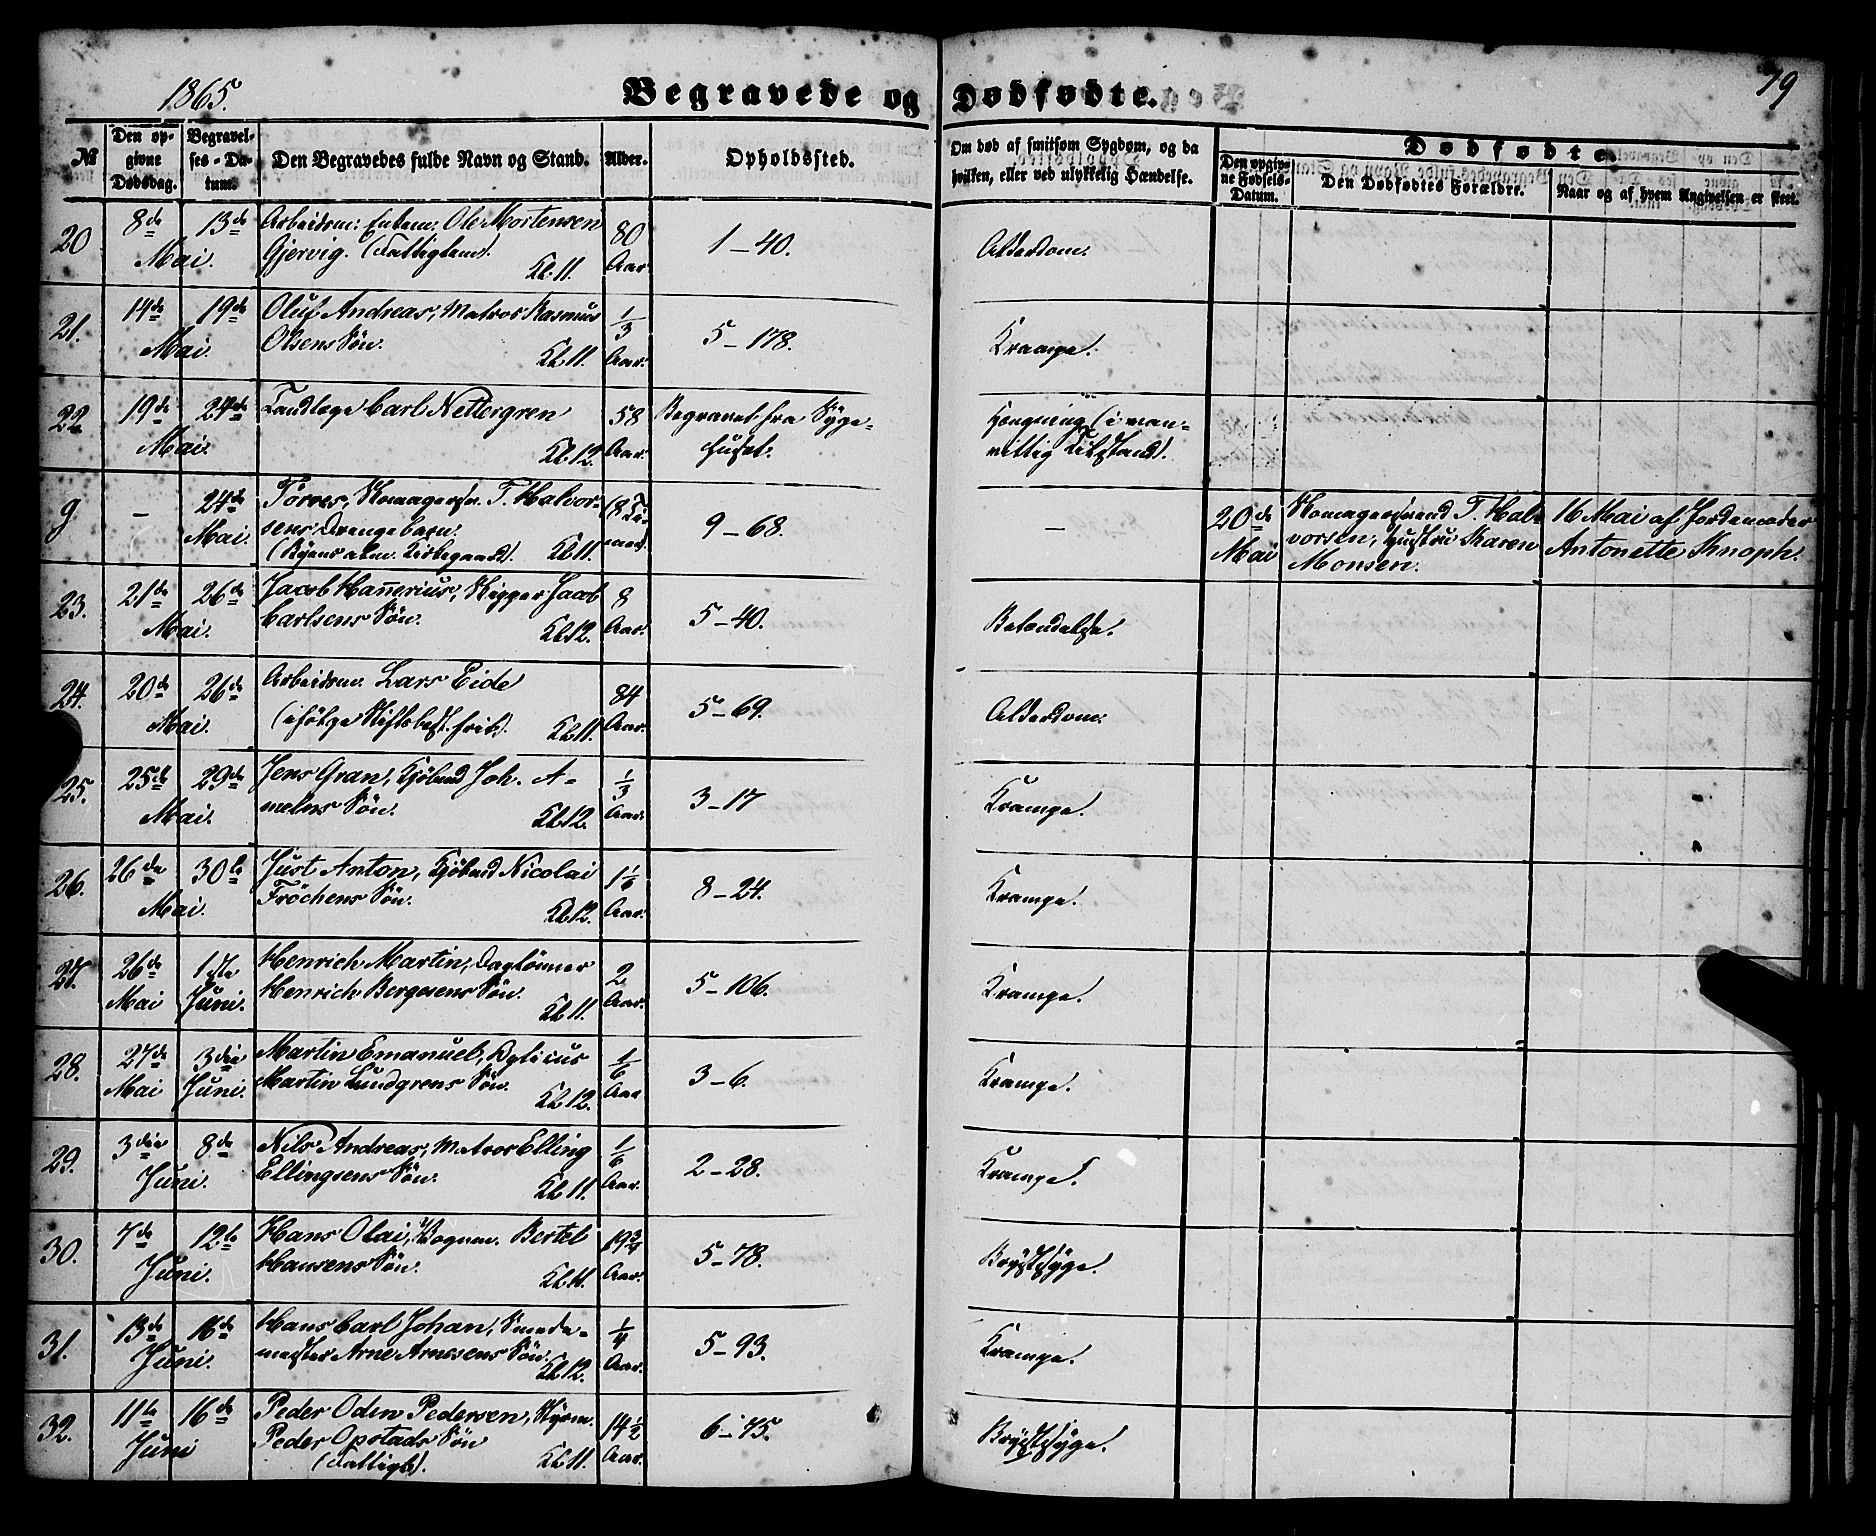 1865.
Begravede og Dødfødte.
79
№
Den op-
givne
Dødsdag.
Begravel-
ses-Da-
tum.
Den Begravedes fulde Navn og Stand.
Alder.
Opholdssted.
Om død af smitsom Sygdom, og da
hvilken, eller ved ulykkelig Hændelse.
Dødfødte.
Den opgiv-
ne Fødsels-
Datum.
Den Dødfødtes Forældre.
Naar og af hvem Angivelsen er skeet.
20
8de 13de
Mai.
Arbeidsm: Enkem: Ole Mortensen
Gjervig. (Fattiglem).
Kl. 11.
80
Aar.
1-40.
Alderdom.
21.
14de 19de
Mai.
Oluf Andreas, Matros Rasmus
Olsens Søn.
Kl. 11.
1/3
Aar.
5-178.
Krampe.
22
19de 24de
Mai.
Tandlæge Carl Nettergren
Kl. 12.
58
Aar.
Begravet fra Syge-
huset.
Hængning (i van-
vittig Tilstand).
9
-
24de
Mai.
T. Halvor-
sens Drengebarn.
Kl. 11.
9-68.
-
20de
Mai
T. Hal-
vorsen, Hustru Karen
Monsen.
16 Mai af Jordemoder
Antonette Knoph.
23.
21de 26de
Mai.
Jacob Hannerius, Rigger Jacob
Carlsens Søn.
Kl. 12.
8
Aar.
5-40.
Betændelse.
24.
20de 26de
Mai.
Arbeidsm. Lars Eide
(ifølge Stiftsbest. frit).
Kl. 11.
84
Aar.
5-69.
Alderdom.
25.
25de 29de
Mai.
Jens Gran, Kjøbmd Joh. A-
melns Søn.
Kl. 12.
1/3
Aar.
3-17
Krampe.
26.
26de 30te
Mai.
Just Anton, Kjøbmd Nicolai
Fröchens Søn.
Kl. 12.
1 1/6
Aar.
8-24.
Krampe.
27.
26de 1ste
Mai Juni.
Henrich Martin, Daglønner
Henrich Bergesens Søn.
Kl. 11.
2
Aar.
5-106.
Krampe.
28.
27de 3die
Mai Juni.
Martin Emanuel,
Martin Lundgrens Søn.
Kl. 12.
1/6
Aar
3-6.
Krampe.
29.
3die 8de
Juni.
Nils Andreas, Matros Elling
Ellingsens Søn.
Kl. 11.
1/6
Aar.
2-28.
Krampe.
30.
7de 12te
Juni.
Hans Olai, Vognm. Bertel
Hansens Søn.
Kl. 11.
19 3/4
Aar.
5-78.
Brystsyge.
31.
13de 16de
Juni.
Hans Carl Johan, Smede-
mester Arne Arnesens Søn.
Kl. 12.
1/4
Aar.
5-93.
Krampe.
32.
11te 16de
Juni
Peder Oden Pedersen, Styrm.
Peder Opstads Søn
(Fattigb).
Kl. 11.
14 1/2
Aar.
6-75.
Brystsyge.